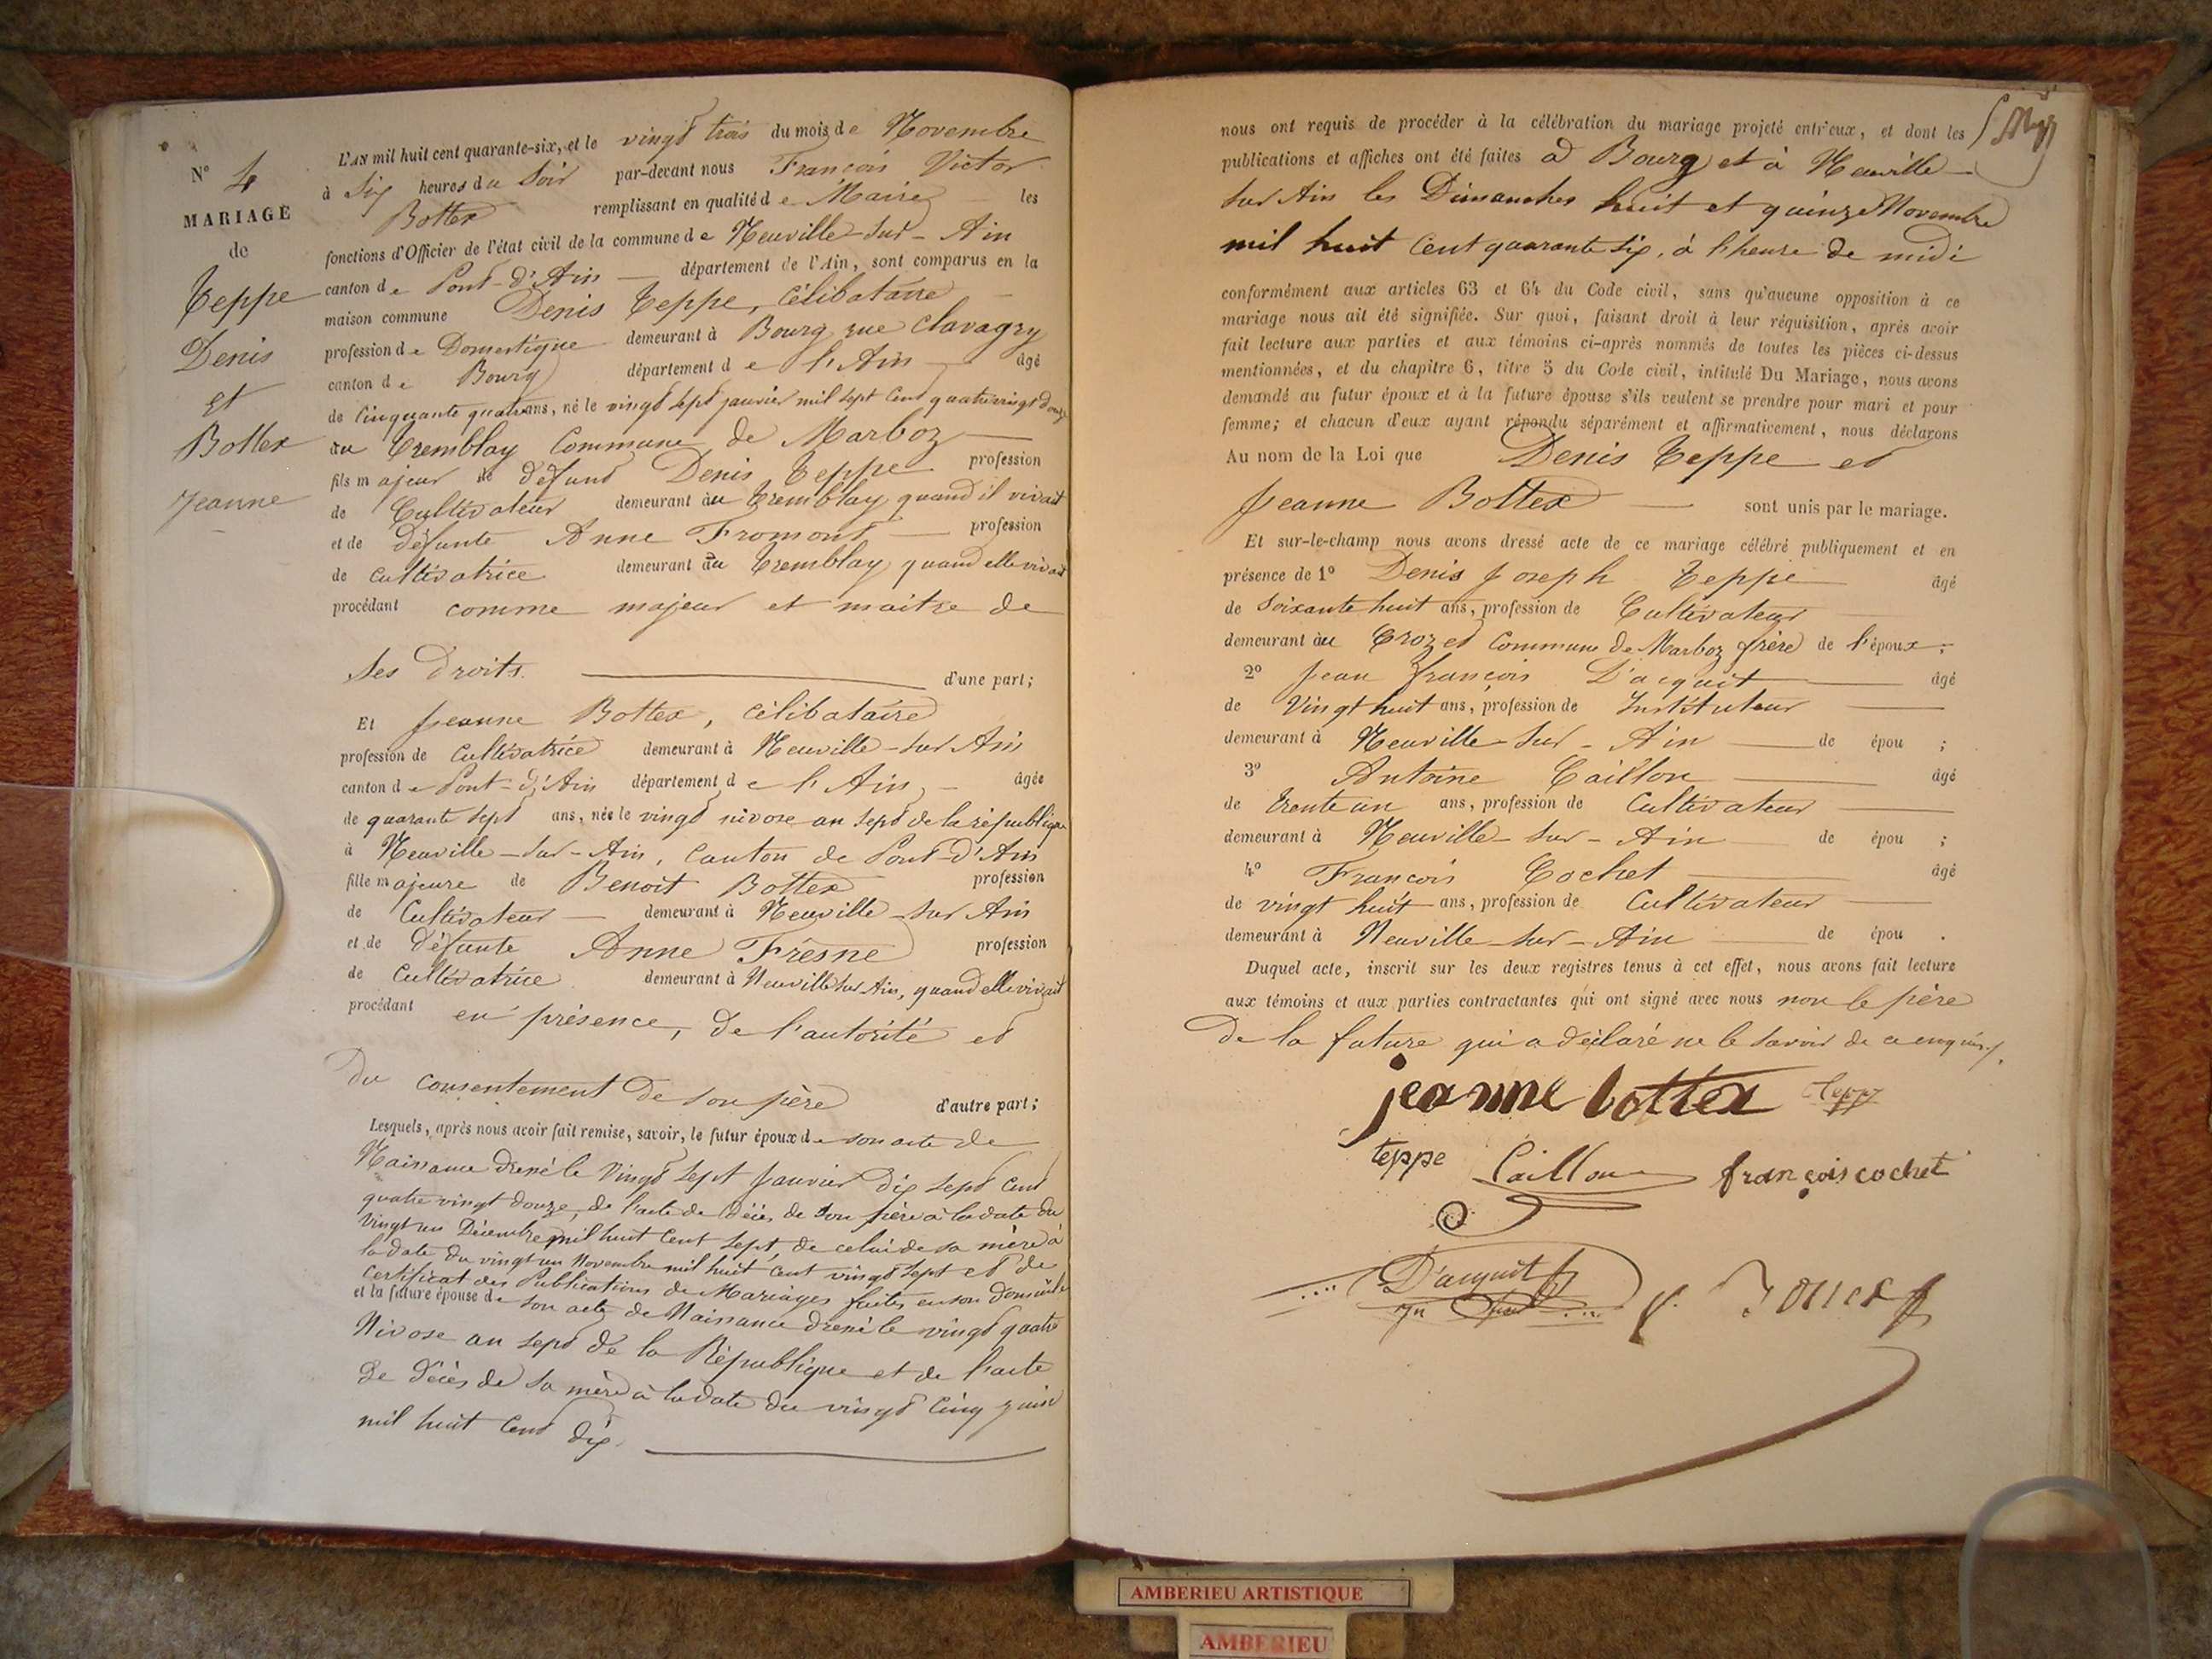 N° 4
MARIAGE
de
Teppe
Denis
et
Bottex
Jeanne
L'AN mil huit cent quarante-six, et le vingt trois du mois de Novembre
à Six heures du Soir par-devant nous François Victor
Bottex remplissant en qualité de Maire les
fonctions d'Officier de l'état civil de la commune de Neuville-sur-Ain
canton de Pont-d'Ain département de l'Ain, sont comparus en la
maison commune Denis Teppe, célibataire
profession de Domestique demeurant à Bourg rue Clavagry
canton de Bourg département de l'Ain âgé
de Cinquante quatre ans, né le vingt sept janvier mil sept cent quatrevingt douze
au Tremblay Commune de Marboz
fils majeur de défunt Denis Teppe profession
de Cultivateur demeurant au Tremblay quand il vivait
et de défunte Anne Fromont profession
de cultivatrice demeurant au Tremblay quand elle vivait
procédant comme majeur et maître de
Ses Droits. d'une part;
Et Jeanne Bottex, célibataire
profession de Cultivatrice demeurant à Neuville-sur Ain
canton de Pont-d'Ain département de l'Ain, âgée
de quarante sept ans, née le vingt nivose an sept de la république
à Neuville-sur-Ain, Canton de Pont-d'Ain
fille majeure de Benoit Bottex profession
de Cultivateur demeurant à Neuville-sur Ain
et de défunte Anne Fresne profession
de Cultivatrice demeurant à Neuville sur Ain, quand elle vivait
procédant en présence, de l'autorité et
du consentement de son père d'autre part;
Lesquels, après nous avoir fait remise, savoir, le futur époux de son acte de
Naissance dressé le Vingt sept Janvier dix sept cent
quatre vingt douze, de l'acte de décès de son père à la date du
vingt un Décembre mil huit cent sept, de celui de sa mère à
la date du vingt un Novembre mil huit cent vingt sept et de
certificat des Publications de Mariages faites en son domicile
et la future épouse de son acte de Naissance dressé le vingt quatre
Nivose an sept de la République et de l'acte
de décès de sa mère à la date du vingt cinq juin
mil huit cent dix
nous ont requis de procéder à la célébration du mariage projeté entr'eux, et dont les
publications et affiches ont été faites à Bourg et à Neuville
sur Ain les Dimanches huit et quinze Novembre
mil huit Cent quarante six, à l'heure de midi
conformément aux articles 63 et 64 du Code civil, sans qu'aucune opposition à ce
mariage nous ait été signifiée. Sur quoi, faisant droit à leur réquisition, après avoir
fait lecture aux parties et aux témoins ci-après nommés de toutes les pièces ci-dessus
mentionnées, et du chapitre 6, titre 5 du Code civil, intitulé Du Mariage, nous avons
demandé au futur époux et à la future épouse s'ils veulent se prendre pour mari et pour
femme; et chacun d'eux ayant répondu séparément et affirmativement, nous déclarons
Au nom de la Loi que Denis Teppe et
Jeanne Bottex sont unis par le mariage.
Et sur-le-champ nous avons dressé acte de ce mariage célébré publiquement et en
présence de 1° Denis Joseph Teppe âgé
de Soixante huit ans, profession de Cultivateur
demeurant au Crozet Commune de Marboz frère de l'époux;
2° Jean François D'acquit âgé
de Vingt huit ans, profession de Instituteur
demeurant à Neuville-Sur-Ain de épou ;
3° Antoine Caillon âgé
de trente un ans, profession de Cultivateur
demeurant à Neuville-sur-Ain de épou ;
4° François Cochet âgé
de vingt huit ans, profession de Cultivateur
demeurant à Neuville-sur-Ain de épou .
Duquel acte, inscrit sur les deux registres tenus à cet effet, nous avons fait lecture
aux témoins et aux parties contractantes qui ont signé avec nous non le père
de la future qui a déclaré ne le savoir de ce enquis.
jeanne bottex Teppe
teppe Caillon françois cochet
D'acquit
V. Bottex
AMBERIEU ARTISTIQUE
AMBERIEU